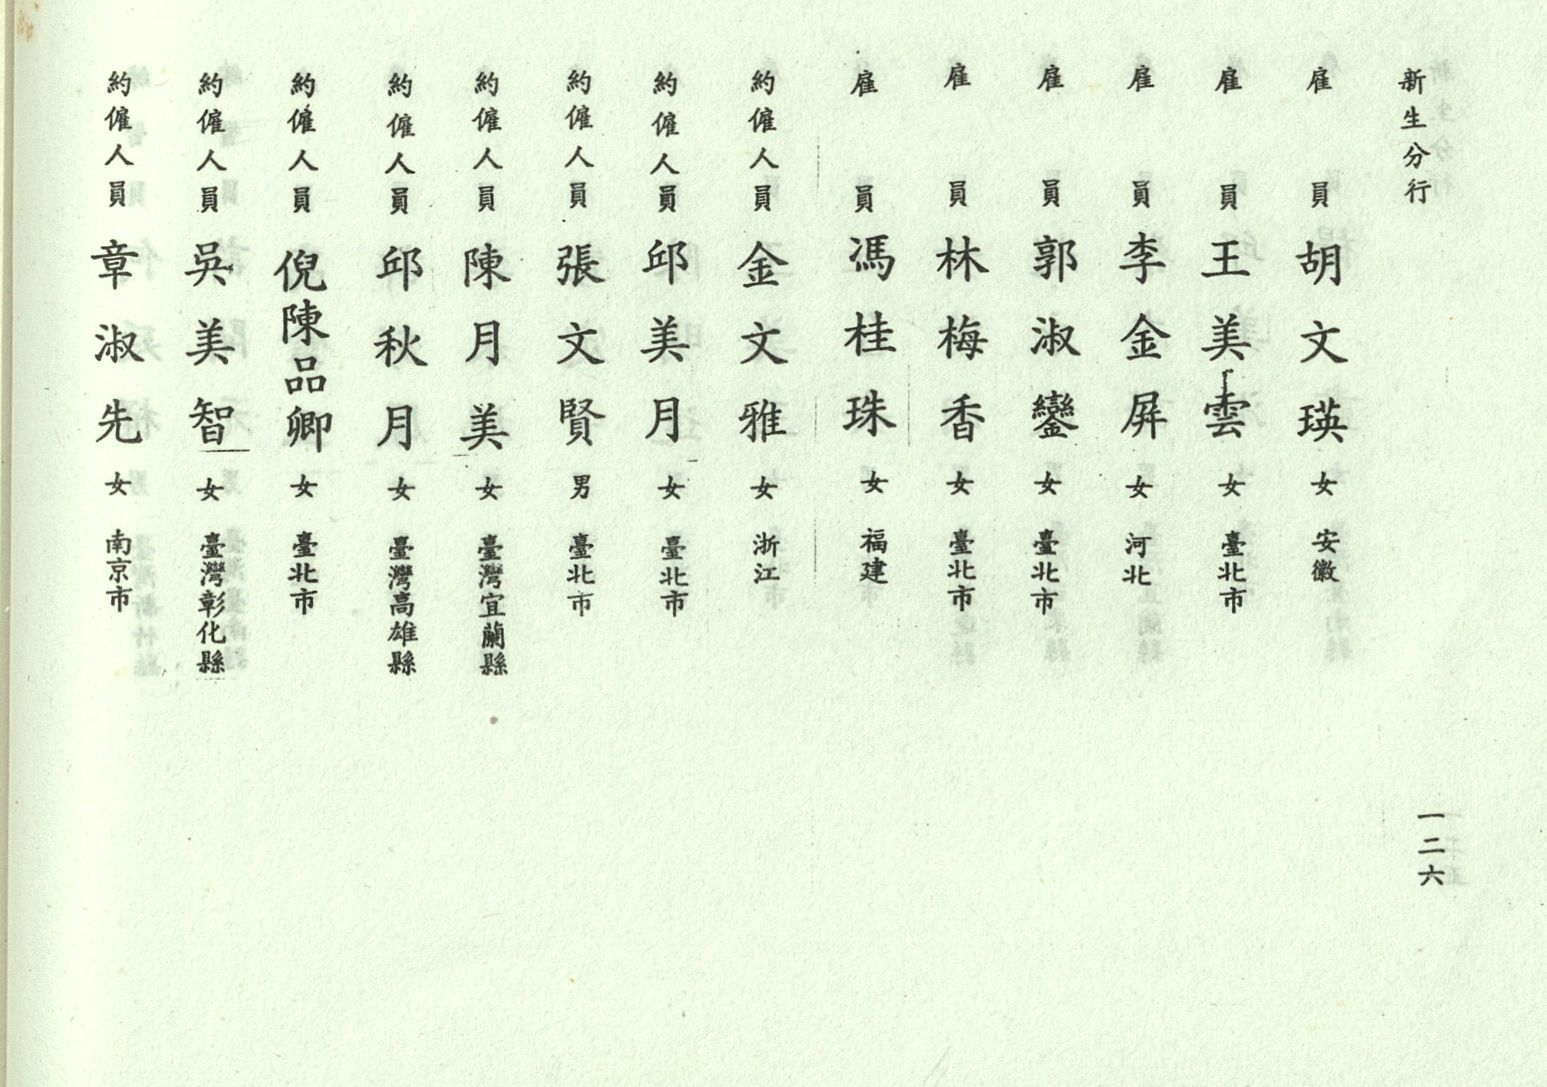 新生分行
雇員 胡文瑛 女 安徽
雇員 王美雲 女 臺北市
雇員 李金屏 女 河北
雇員 郭淑鑾 女 臺北市
雇員 林梅香 女 臺北市
雇員 馮桂珠 女 福建
約僱人員 金文雅 女 浙江
約僱人員 邱美月 女 臺北市
約僱人員 張文賢 男 臺北市
約僱人員 陳月美 女 臺灣宜蘭縣
約僱人員 邱秋月 女 臺灣高雄縣
約僱人員 倪陳品卿 女 臺北市
約僱人員 吳美智 女 臺灣彰化縣
約僱人員 章淑先 女 南京市
一二六